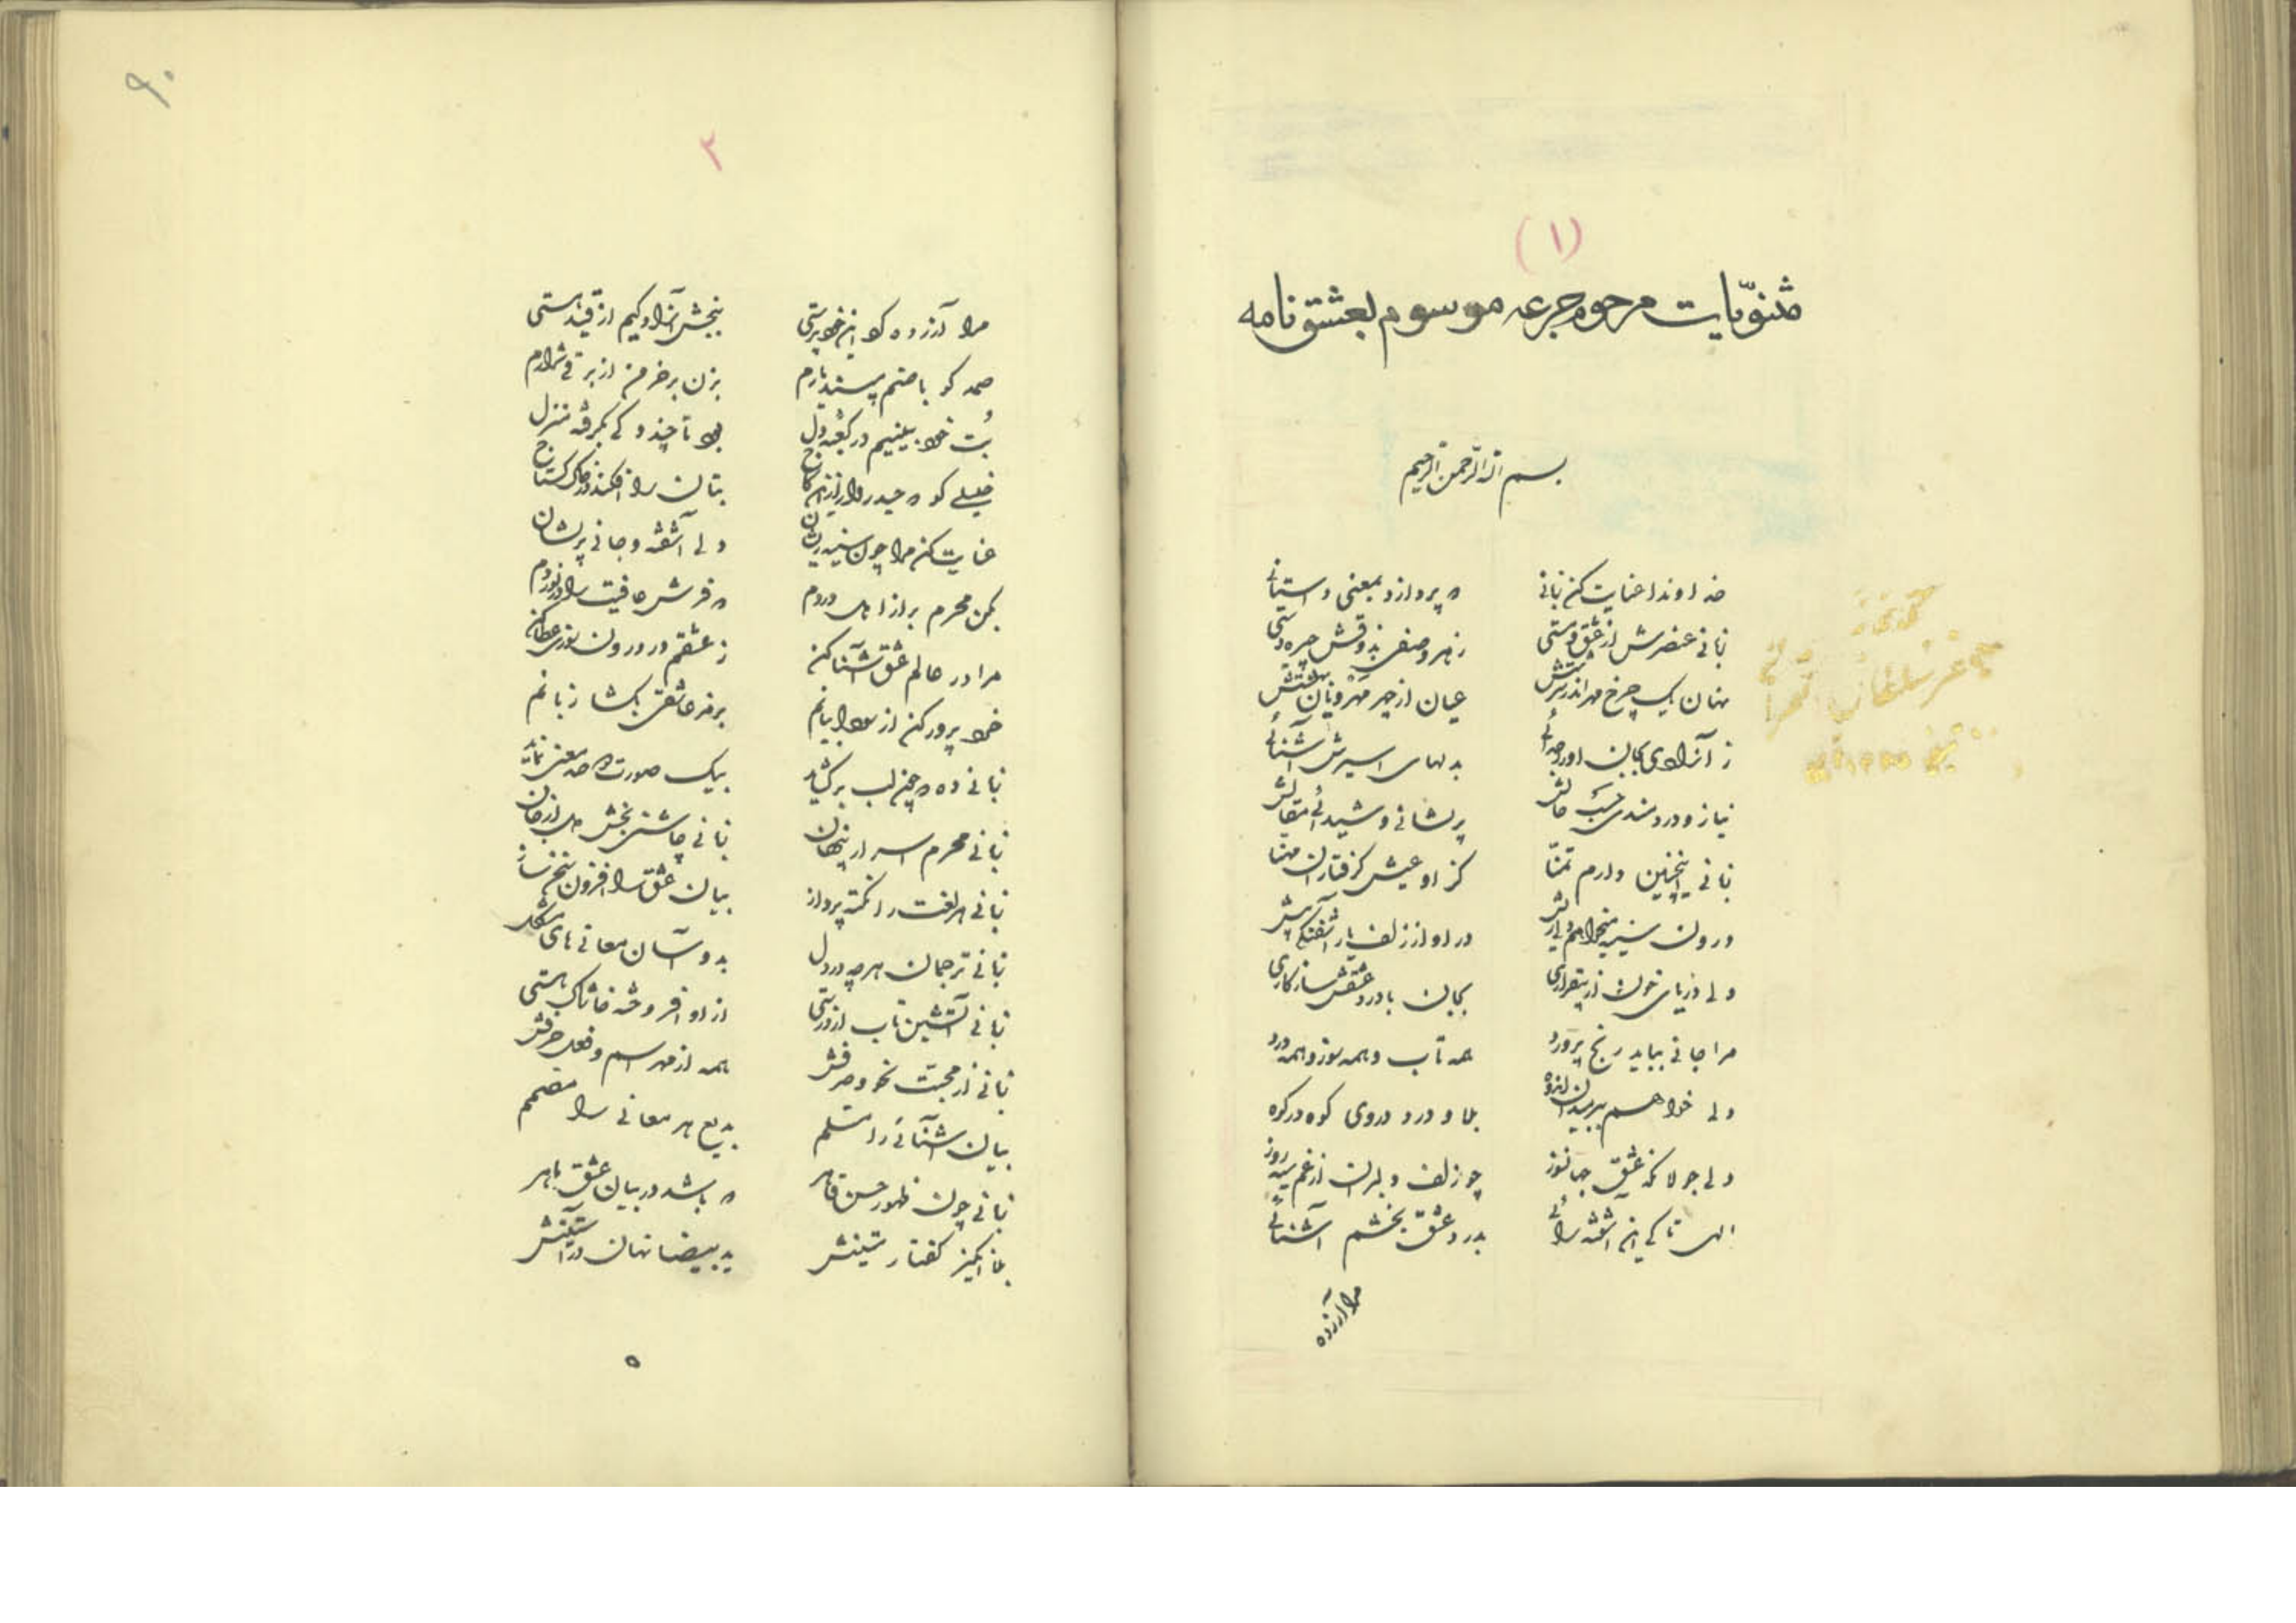 (۱)
مثنویات مرحوم جرعه موسوم بعشق نامه
بسم الله الرحمن الرحیم
خداوندا عنایت کن زبانی که پردازد بمعنی داستانی
زبانی عنصرش از عشق و مستی ز هر وصفی بذوقش چیره دستی
نهان یک چرخ مهر اندر عیان از چهر مهرویان
ز آزادی بجان او را جدائی بدلهای اسیرش آشنائی
نیاز و دردمندی حسب حالش پریشانی و شیدائی مقالش
زبانی اینچنین دارم تمنا کز او عیش گرفتاران مهنا
درون سینه میخواهم در او از زلف یار آشفتگی بیش
دلی دریای خون از بیقراری بجان با درد عشقش سازگاری
مرا جانی بباید رنج پرورد همه تاب و همه سوز و همه درد
دلی خواهم بلا و درد در وی کوه در کوه
دلی جولانگه عشق جهانسوز چو زلف دلبران از غم سیه روز
الهی تا کی این آشفته رائی بدرد عشق بخشم آشنائی
مرا آزرده
۲
مرا آزرده کرد این خودپرستی ببخش آزادگیم از قید هستی
صمد کو با صنم بپسندد یارم بزن بر خرمن از برقی شرارم
بت خود بینیم در کعبه دل بود تا چند و کی بگرفته منزل
خلیلی کو که بتان را افکند در خاک گستاخ
عنایت کن مرا چون سینه ریشان دلی آشفته و جانی پریشان
بکن محرم براز اهل دردم که فرش عافیت را در نوردم
مرا در عالم عشق آشنا کن ز عشقم در درون سوزی عطا کن
خرد پرور کن از سودا بیانم برمز عاشقی بگشا زبانم
زبانی ده که چون لب برگشاید بیک صورت دو صد معنی نماید
زبانی محرم اسرار پنهان زبانی چاشنی بخش دل از جان
زبانی هر لغت را نکته پرداز بیان عشق را افزون سخن ساز
زبانی ترجمان هرچه در دل بدو آسان معانی های مشکل
زبانی آتشین تاب از درستی از او افروخته خاشاک هستی
زبانی از محبت نحو و صرفش همه از مهر اسم و فعل و حرفش
بیان آشنائی را مسلم بدیع هر معانی را متمم
زبانی چون ظهور حسن قاهر که باشد در بیان عشق ماهر
بلا انگیز گفتار متینش ید بیضا نهان در آستینش
۹۰